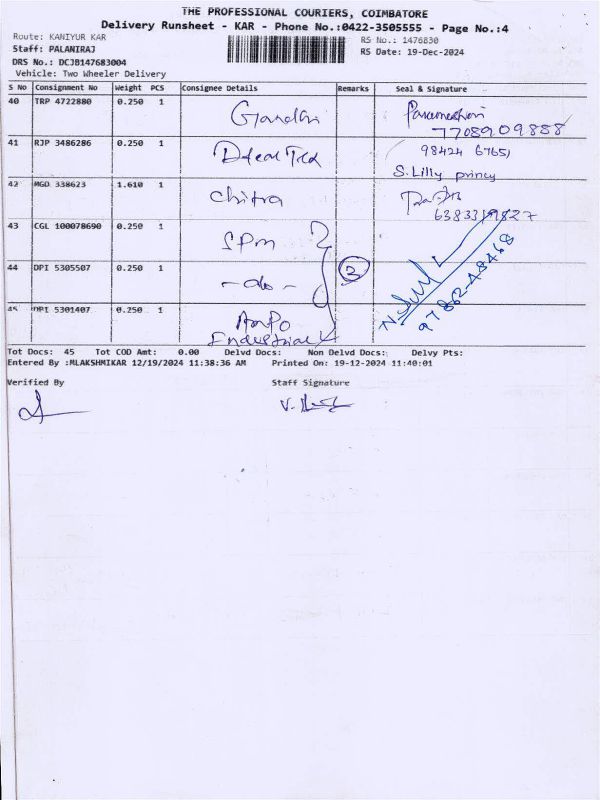 THE PROFESSIONAL COURIERS, COIMBATORE
Delivery Runsheet - KAR - Phone No.:0422-3505555 - Page No.:4
Route: KANIYUR KAR
RS No.: 1476830
Staff: PALANIRAJ
RS Date: 19-Dec-2024
DRS No.: DCJB147683004
Vehicle: Two Wheeler Delivery
S No Consignment No Weight PCS Consignee Details Remarks Seal & Signature
40 TRP 4722880 0.250 1 Gandhi Parameshwari
7708909888
41 RJP 3486286 0.250 1 98424 67651
S. Lilly princy
42 MGD 338623 1.610 1 chitra
6383319827
43 CGL 100078690 0.250 1 SPM
44 DPI 5305507 0.250 1 -do- 3
97862-48468
45 DPI 5301407 0.250 1 Ampo
Industrial
Tot Docs: 45 Tot COD Amt: 0.00 Delvd Docs: Non Delvd Docs: Delvy Pts:
Entered By :MLAKSHMIKAR 12/19/2024 11:38:36 AM Printed On: 19-12-2024 11:40:01
Verified By Staff Signature